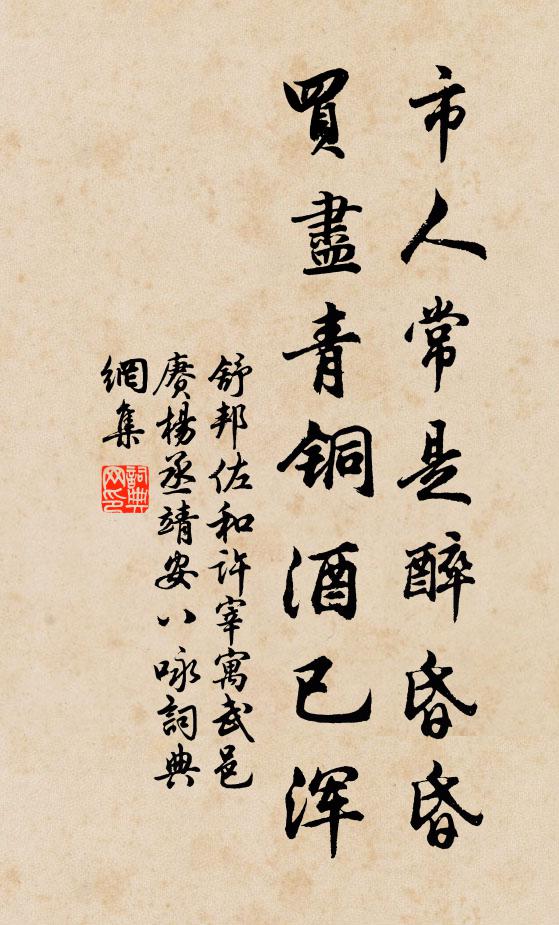 市人常是醉昏昏
買盡青銅酒已浑
舒邦佐和许宰寓武邑
赓楊丞靖安八咏詞典
網集
詞典網印